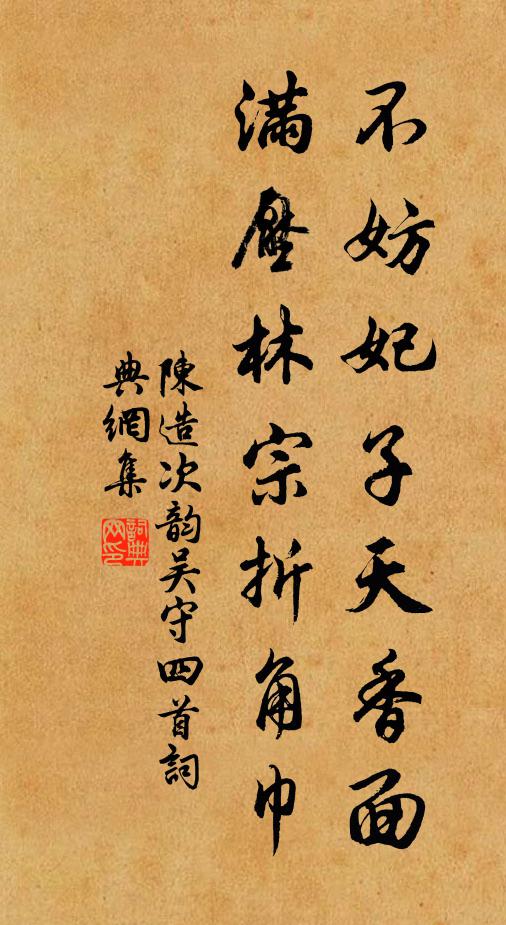 不妨妃子天香面
滿壓林宗折角巾
陳造次韵吳守四首詞
典網集
詞典网印